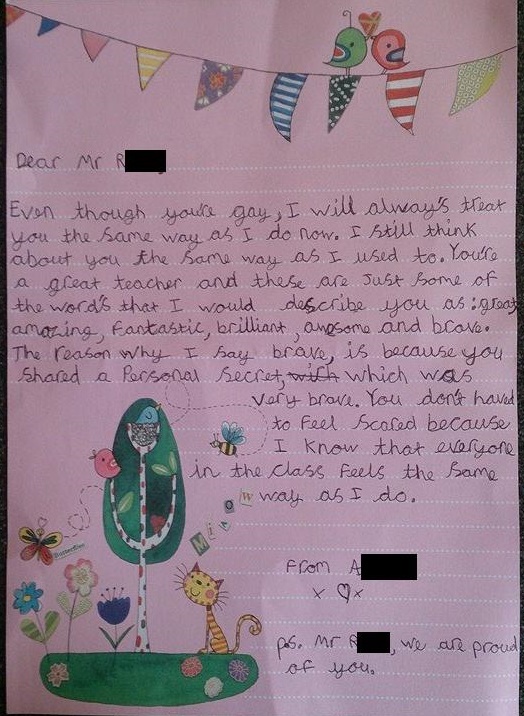 Dear Mr R
Even though you're gay, I will alway's treat
you the same way as I do now. I still think
about you the same way as I used to. You're
a great teacher and these are just some of
the word's that I would describe you as: great,
amazing, fantastic, brilliant, awesome and brave.
The reason why I say brave, is because you
shared a Personal secret, with which was
very brave. You don't haved
to feel scared because
I know that everyone
in the class feels the same
way as I do.
Miow
Butterflies
From A
x ♡ x
ps. Mr R, we are proud
of you.